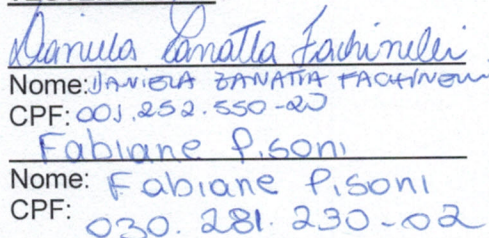 Daniela Zanatta Fachinelli
Nome: DANIELA ZANATTA FACHINELLI
CPF: 001.252.550-20
Fabiane Pisoni
Nome: Fabiane Pisoni
CPF: 030.281.230-02